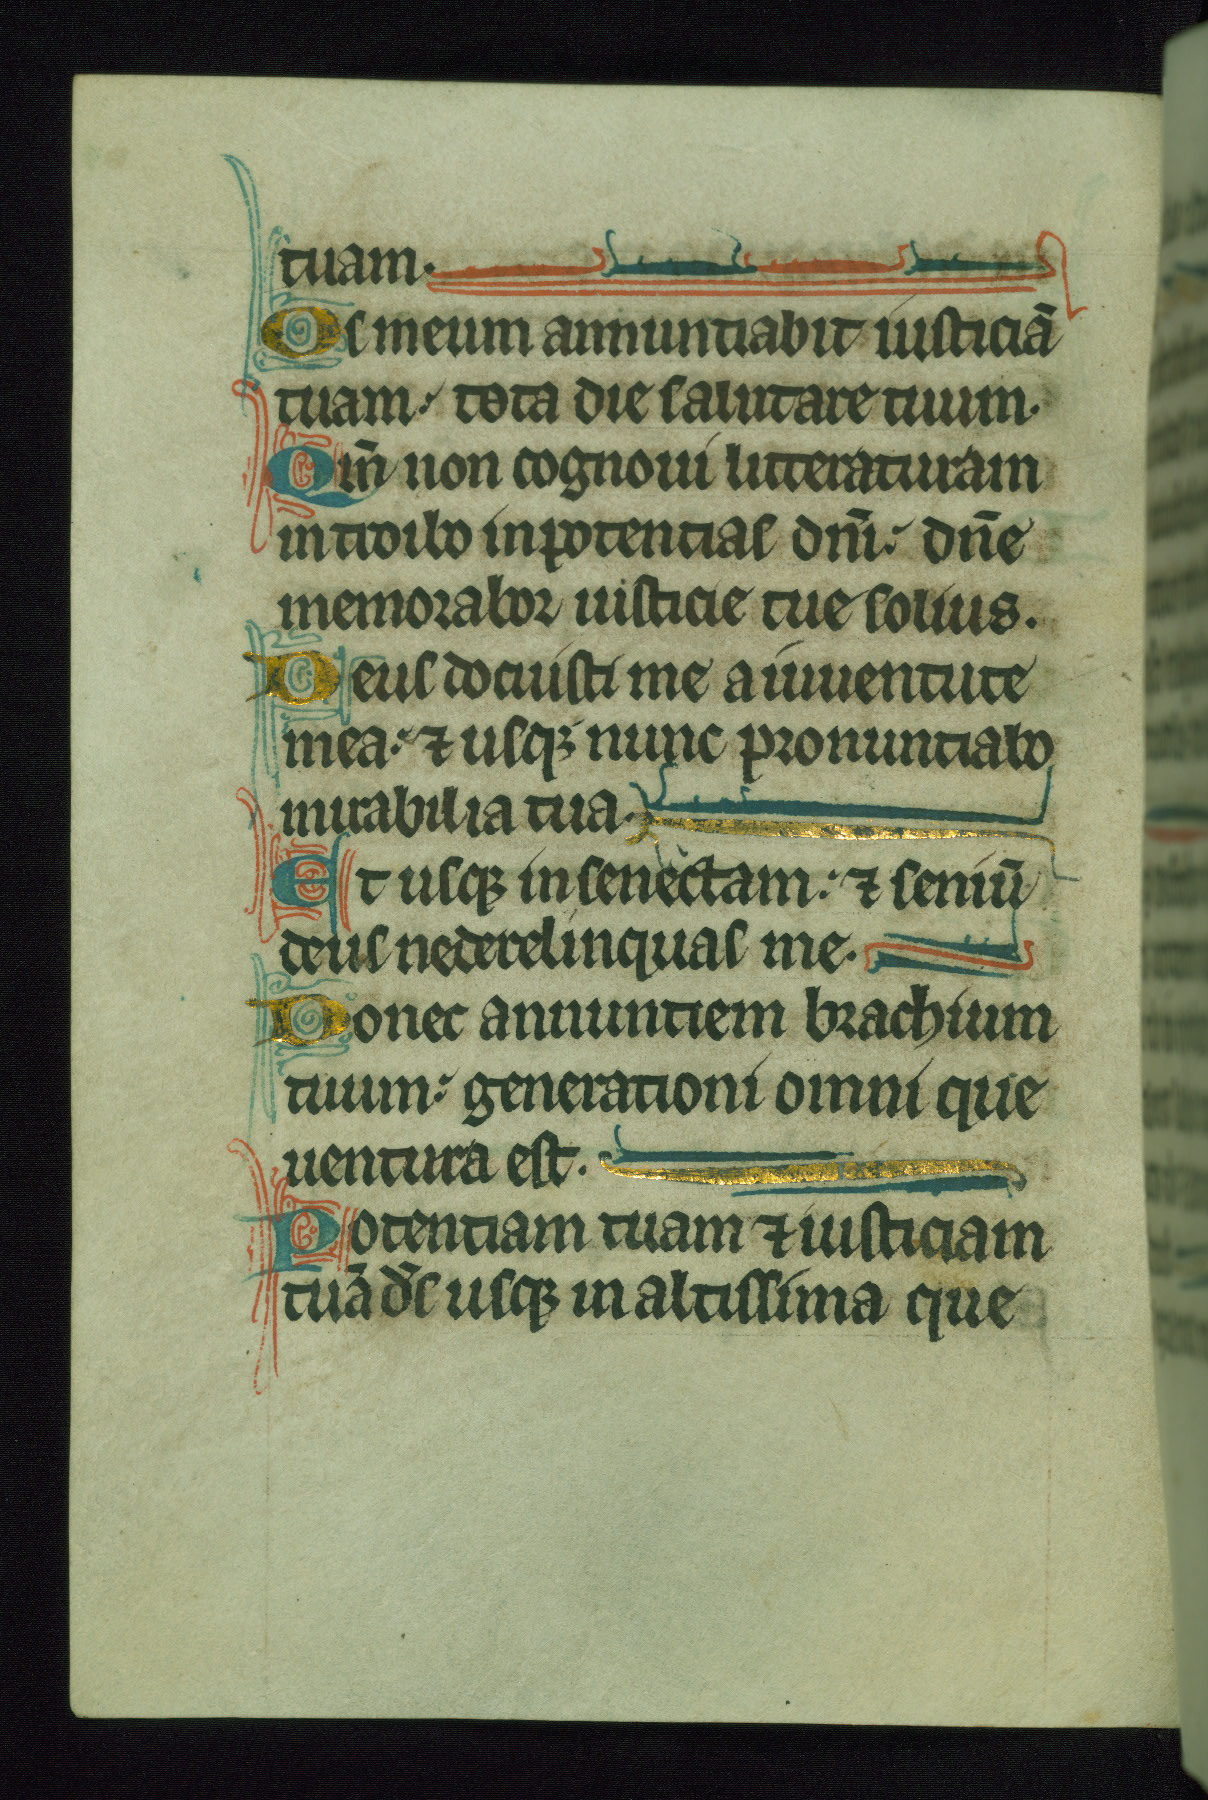 tuam.
Os meum annuntiabit iusticiā
tuam: tota die salutare tuum.
Qm̄ non cognoui litteraturam
introibo in potentias dn̄i: dn̄e
memorabor iusticie tue solius.
Deus docuisti me a iuuentute
mea: ⁊ usqꝫ nunc pronuntiabo
mirabilia tua.
Et usqꝫ in senectam: ⁊ seniū
deus ne derelinquas me.
Donec annuntiem brachium
tuum: generationi omni que
uentura est.
Potentiam tuam ⁊ iusticiam
tuā ds̄ usqꝫ in altissima que